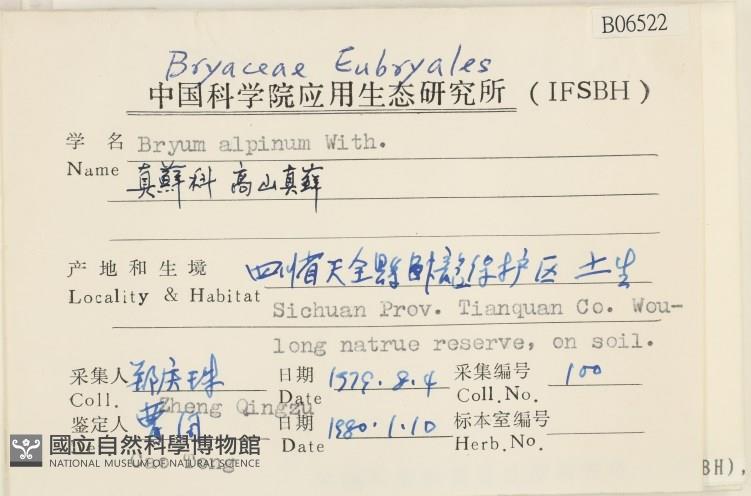 B06522
Bryaceae Eubryales
中国科学院应用生态研究所 (IFSBH)
学 名 Bryum alpinum With.
Name 真蘚科 高山真蘚
产地和生境 四川省天全縣卧龍保护区 土生
Locality & Habitat Sichuan Prov. Tianquan Co. Wou-
long natrue reserve, on soil.
采集人 郑庆珠 日期 1979.8.4 采集编号 100
Coll. Zheng Qingzu Date Coll.No.
鉴定人 曹同 日期 1980.1.10 标本室编号
Date Herb.No.
國立自然科學博物館
NATIONAL MUSEUM OF NATURAL SCIENCE
Cao Tong
BH),